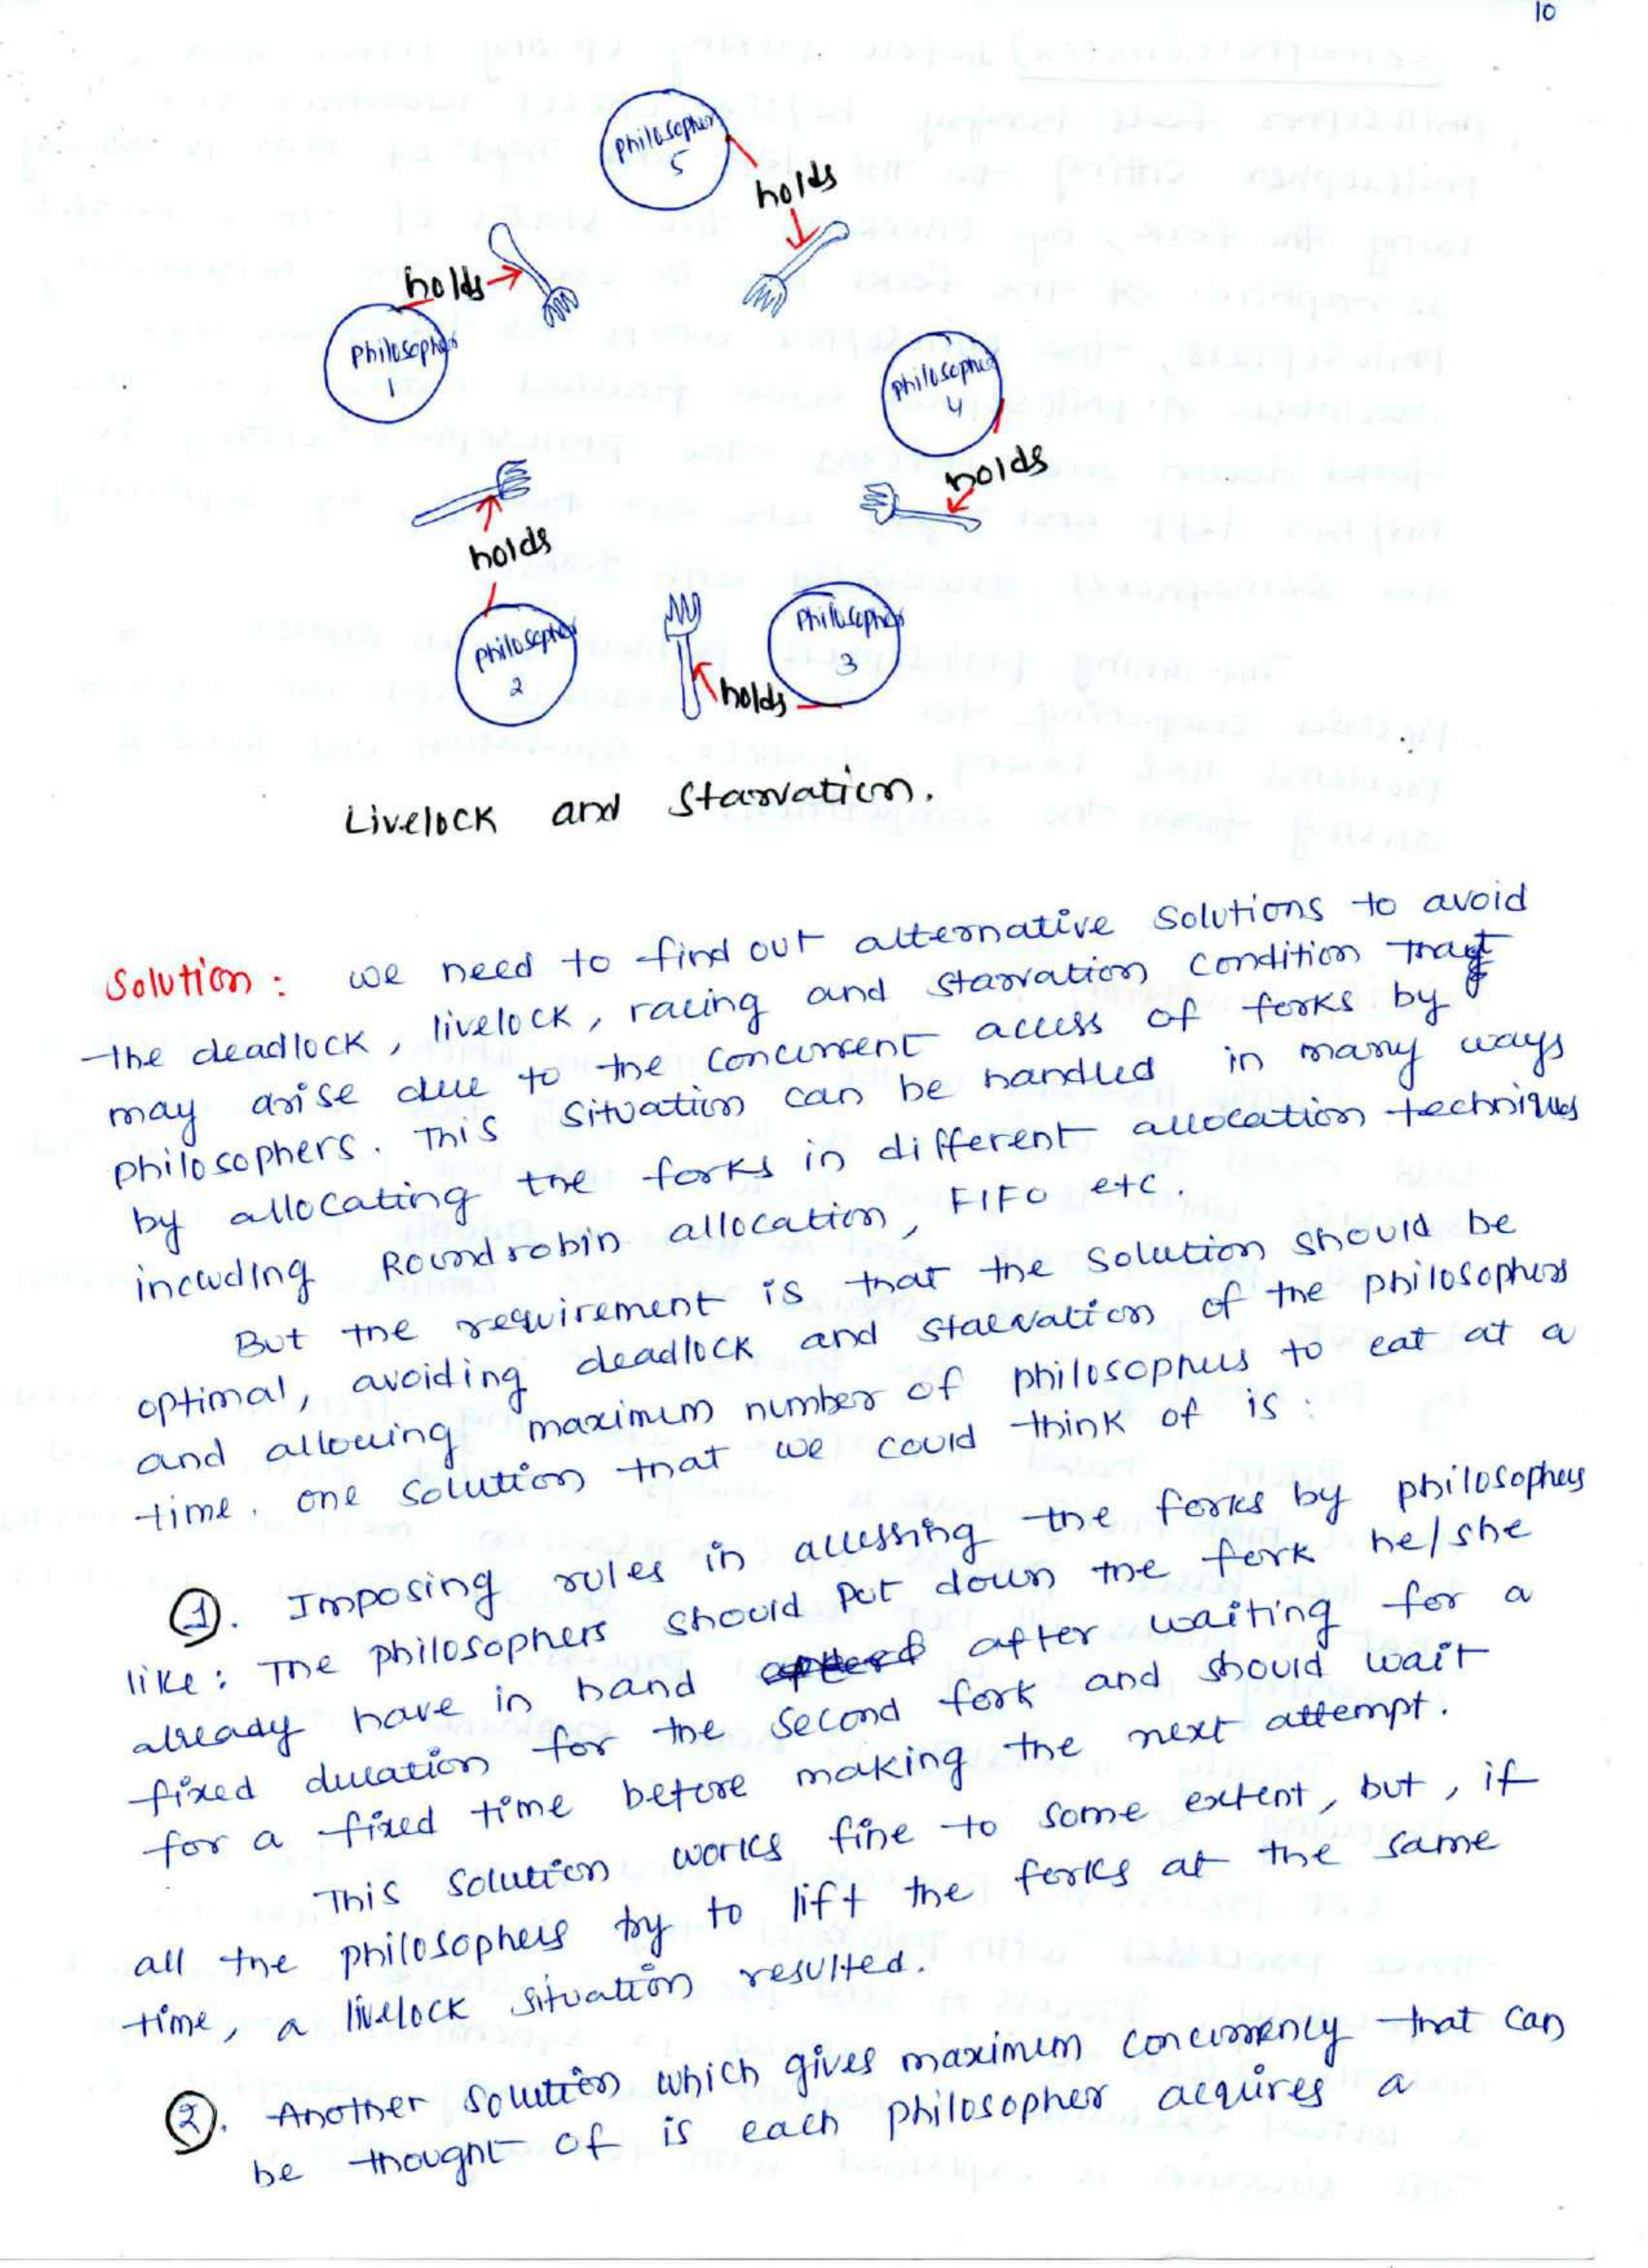 10
Philosopher
5
holds
holds
Philosopher
1
Philosopher
4
holds
holds
Philosopher
2
Philosopher
3
holds
Livelock and Starvation.
Solution: we need to find out alternative solutions to avoid
the deadlock, livelock, racing and starvation condition that
may arise due to the concurrent access of forks by
philosophers. This situation can be handled in many ways
by allocating the forks in different allocation techniques
including Roundrobin allocation, FIFO etc.
But the requirement is that the solution should be
optimal, avoiding deadlock and starvation of the philosophers
and allowing maximum number of philosophers to eat at a
time. one solution that we could think of is:
①. Imposing rules in accessing the forks by philosophers
like: The philosophers should put down the fork he/she
already have in hand after waiting for a
fixed duration for the second fork and should wait
for a fixed time before making the next attempt.
This solution works fine to some extent, but, if
all the philosophers try to lift the forks at the same
time, a livelock situation resulted.
②. Another solution which gives maximum concurrency that can
be thought of is each philosopher acquires a